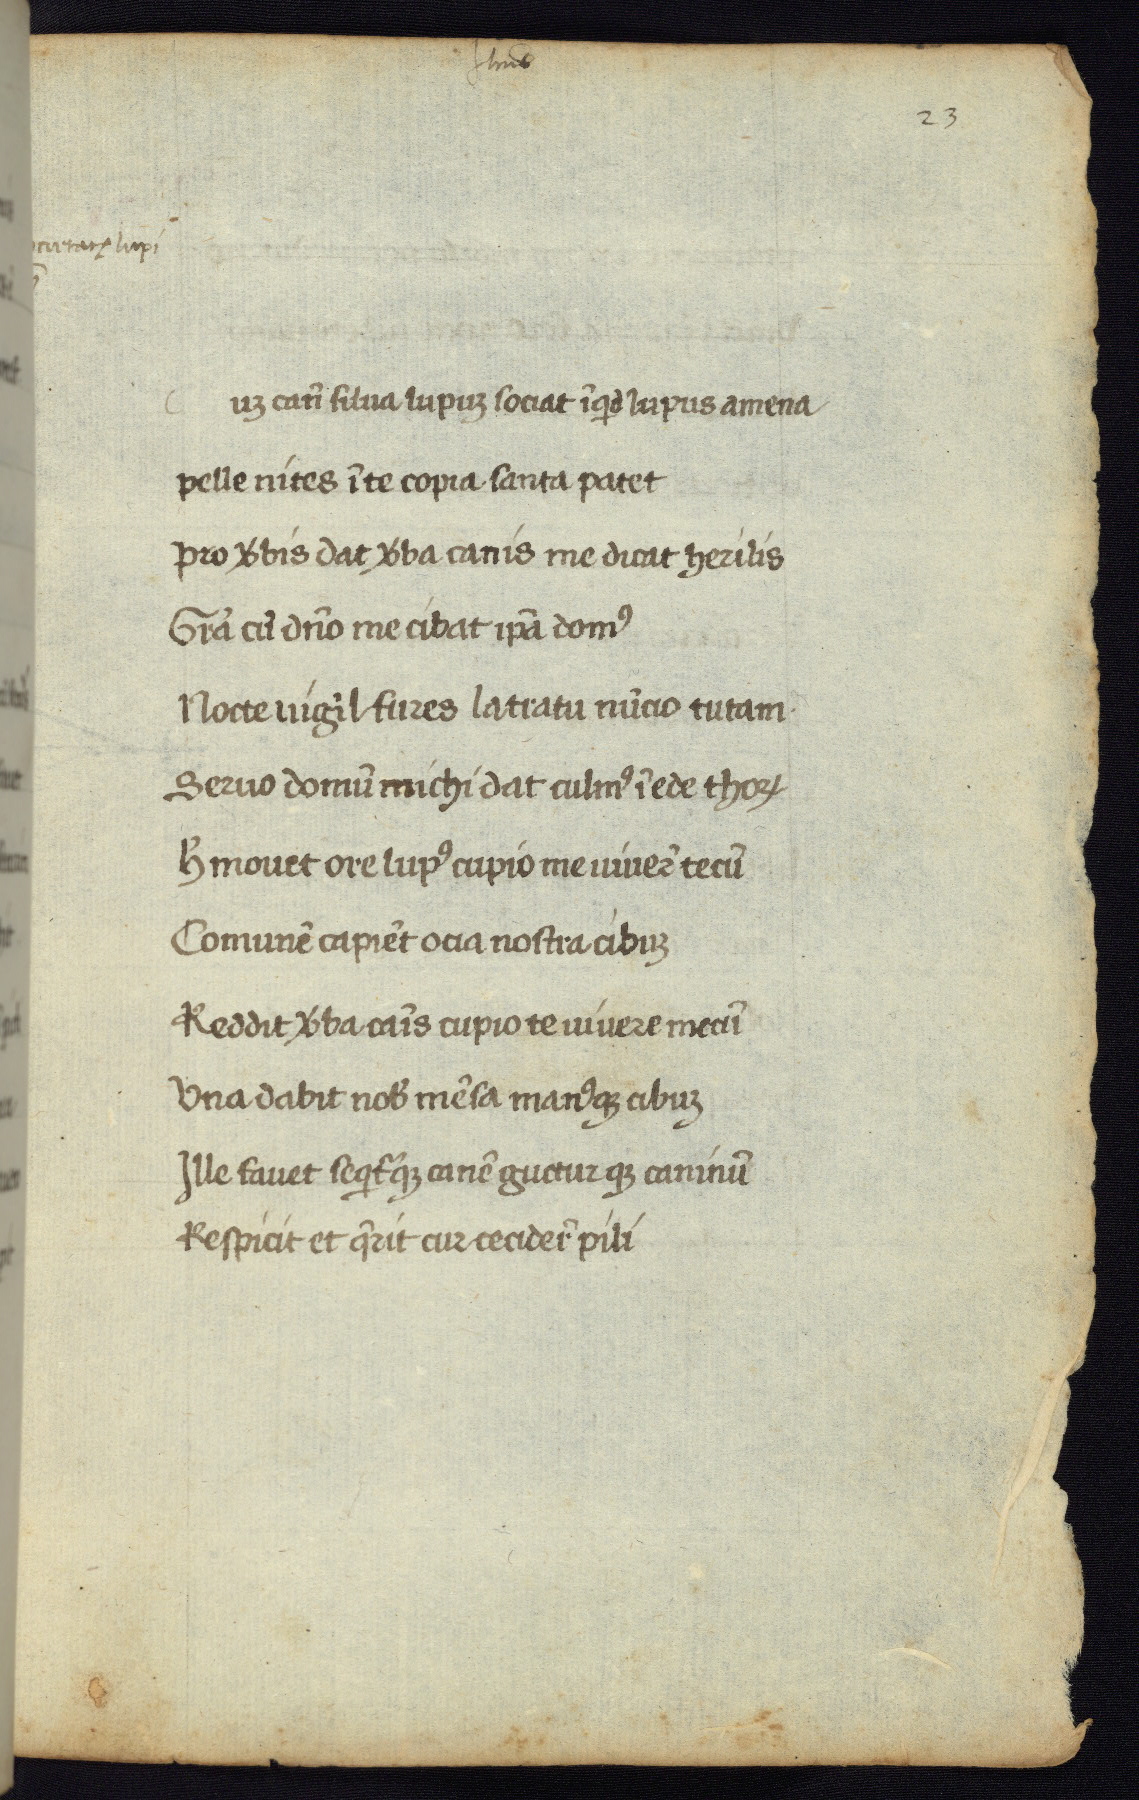 Ihus
23
lupi
uʒ canī silua lupuʒ sociat īq̄d lupus amena
pelle nites ī te copia santa patet
pro ꝟbis dat ꝟba canis me dicat herilis
Grā cū dn̄o me cibat ip̄a domꝰ
Nocte uigil fures latratu nūcio tutam
Seruo domū michi dat culmꝰ ī ede thoꝝ
H̄ mouet ore lupꝰ cupio me uiuer̄ tecū
Comunē capiēt ocia nostra cibuʒ
Reddit ꝟba caīs cupio te uiuere mecū
Vna dabit nob̄ mēsa manꝰqʒ cibuʒ
Ille fauet seqͥtʳqʒ canē guctur qʒ caninū
Respicit et q̄rit cur cecider̄ pili